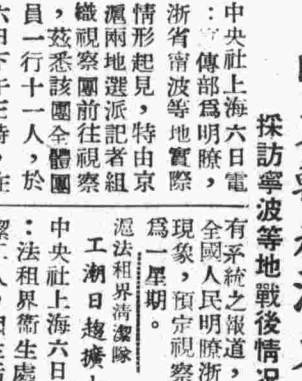 採訪寧波等地戰後情況
中央社上海六日電
：傳部爲明瞭，
浙省甯波等地實際
情形起見，特由京
滬兩地選派記者組
織視察團前往視察
，茲悉該團全體團
員一行十一人，於
六日下午三時，在
有系統之報道，
全國人民明瞭浙
現象，預定視察
爲一星期。
滬法租界清潔隊
工潮日趨擴
中央社上海六日
：法租界衛生處
潔工人，